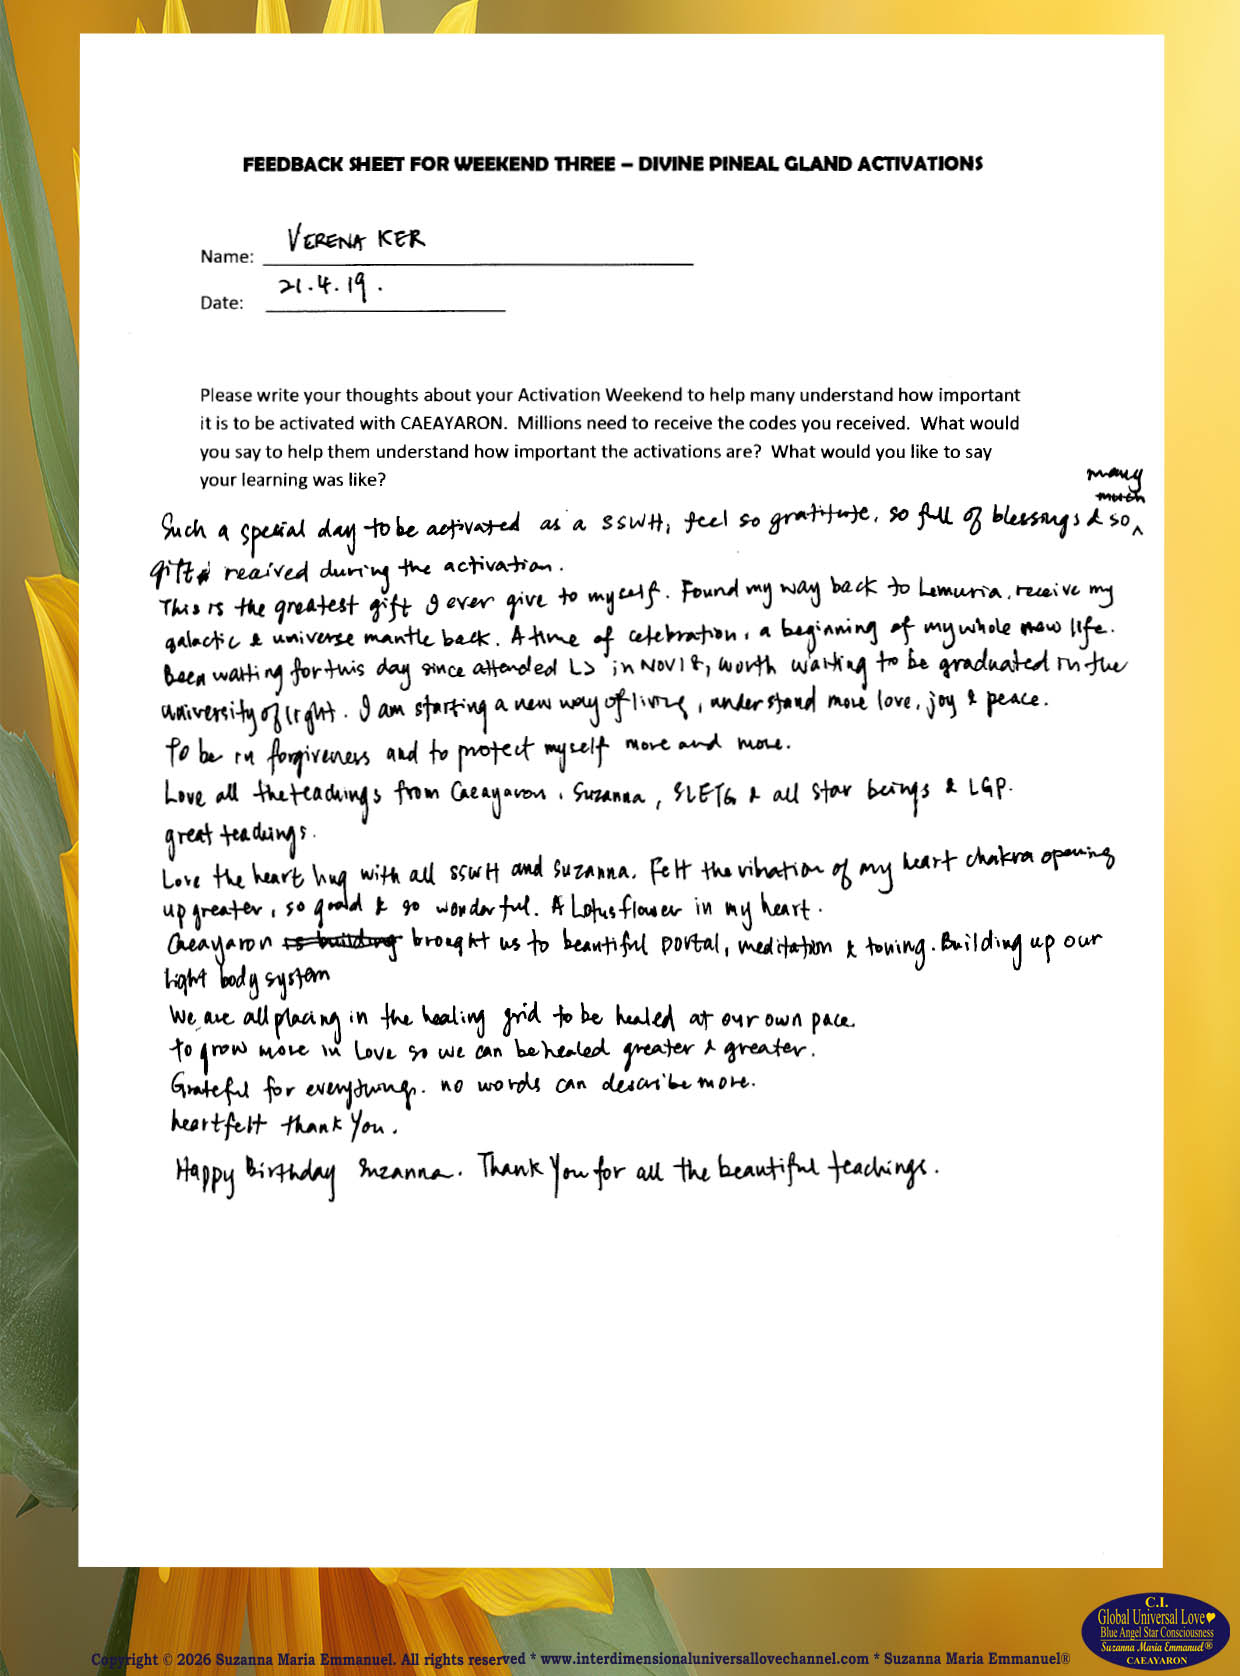 FEEDBACK SHEET FOR WEEKEND THREE – DIVINE PINEAL GLAND ACTIVATIONS
Name: VERENA KER
Date: 21.4.19.
Please write your thoughts about your Activation Weekend to help many understand how important
it is to be activated with CAEAYARON. Millions need to receive the codes you received. What would
you say to help them understand how important the activations are? What would you like to say
your learning was like?
many
much
Such a special day to be activated as a SSWH, feel so gratitute, so full of blessings & so
gift received during the activation.
This is the greatest gift I ever give to myself. Found my way back to Lemuria, receive my
galactic & universe mantle back. A time of celebration, a beginning of my whole new life.
Been waiting for this day since attended LS in Nov 18, worth waiting to be graduated in the
university of light. I am starting a new way of living, understand more love, joy & peace.
To be in forgiveness and to protect myself more and more.
Love all the teachings from Caeayaron, Suzanna, SLETG & all star beings & LGP.
great teachings.
Love the heart hug with all SSWH and Suzanna. Felt the vibration of my heart chakra opening
up greater, so good & so wonderful. A Lotus flower in my heart.
Caeayaron is building brought us to beautiful portal, meditation & toning. Building up our
light body system
We are all placing in the healing grid to be healed at our own pace.
to grow more in Love so we can be healed greater & greater.
Grateful for everything. no words can describe more.
heartfelt thank you.
Happy Birthday Suzanna. Thank You for all the beautiful teachings.
C.I.
Global Universal Love
Blue Angel Star Consciousness
Suzanna Maria Emmanuel®
CAEAYARON
Copyright © 2026 Suzanna Maria Emmanuel. All rights reserved * www.interdimensionaluniversallovechannel.com * Suzanna Maria Emmanuel®